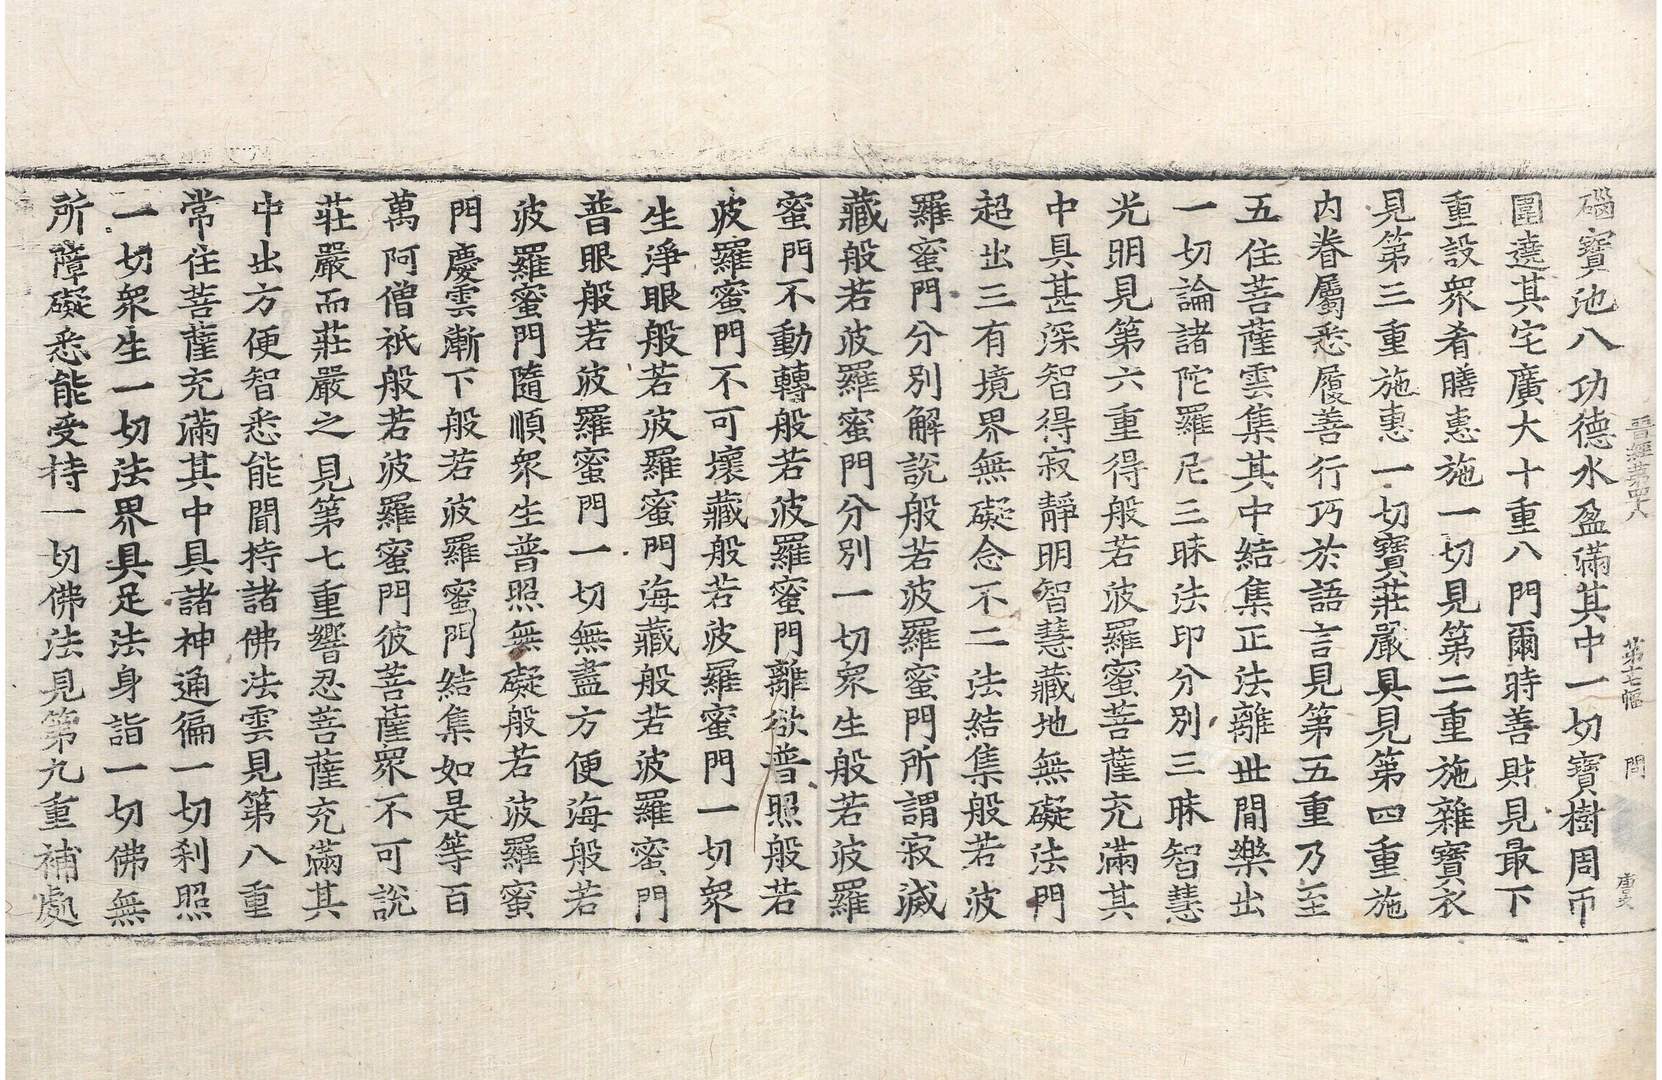 晋經第四十八 第七幅 問
碯寶池八功德水盈滿其中一切寶樹周帀
圍遶其宅廣大十重八門爾時善財見最下
重設衆肴膳惠施一切見第二重施雜寶衣
見第三重施惠一切寶莊嚴具見第四重施
内眷屬悉履善行巧於語言見第五重乃至
五住菩薩雲集其中結集正法離世間樂出
一切論諸陀羅尼三昧法印分別三昧智慧
光明見第六重得般若波羅蜜菩薩充滿其
中具甚深智得寂靜明智慧藏地無礙法門
超出三有境界無礙念不二法結集般若波
羅蜜門分別解說般若波羅蜜門所謂寂滅
藏般若波羅蜜門分別一切衆生般若波羅
蜜門不動轉般若波羅蜜門離欲普照般若
波羅蜜門不可壞藏般若波羅蜜門一切衆
生淨眼般若波羅蜜門海藏般若波羅蜜門
普眼般若波羅蜜門一切無盡方便海般若
波羅蜜門隨順衆生普照無礙般若波羅蜜
門慶雲漸下般若波羅蜜門結集如是等百
萬阿僧祇般若波羅蜜門彼菩薩衆不可說
莊嚴而莊嚴之見第七重響忍菩薩充滿其
中出方便智悉能聞持諸佛法雲見第八重
常住菩薩充滿其中具諸神通徧一切刹照
一切衆生一切法界具足法身詣一切佛無
所障礙悉能受持一切佛法見第九重補處